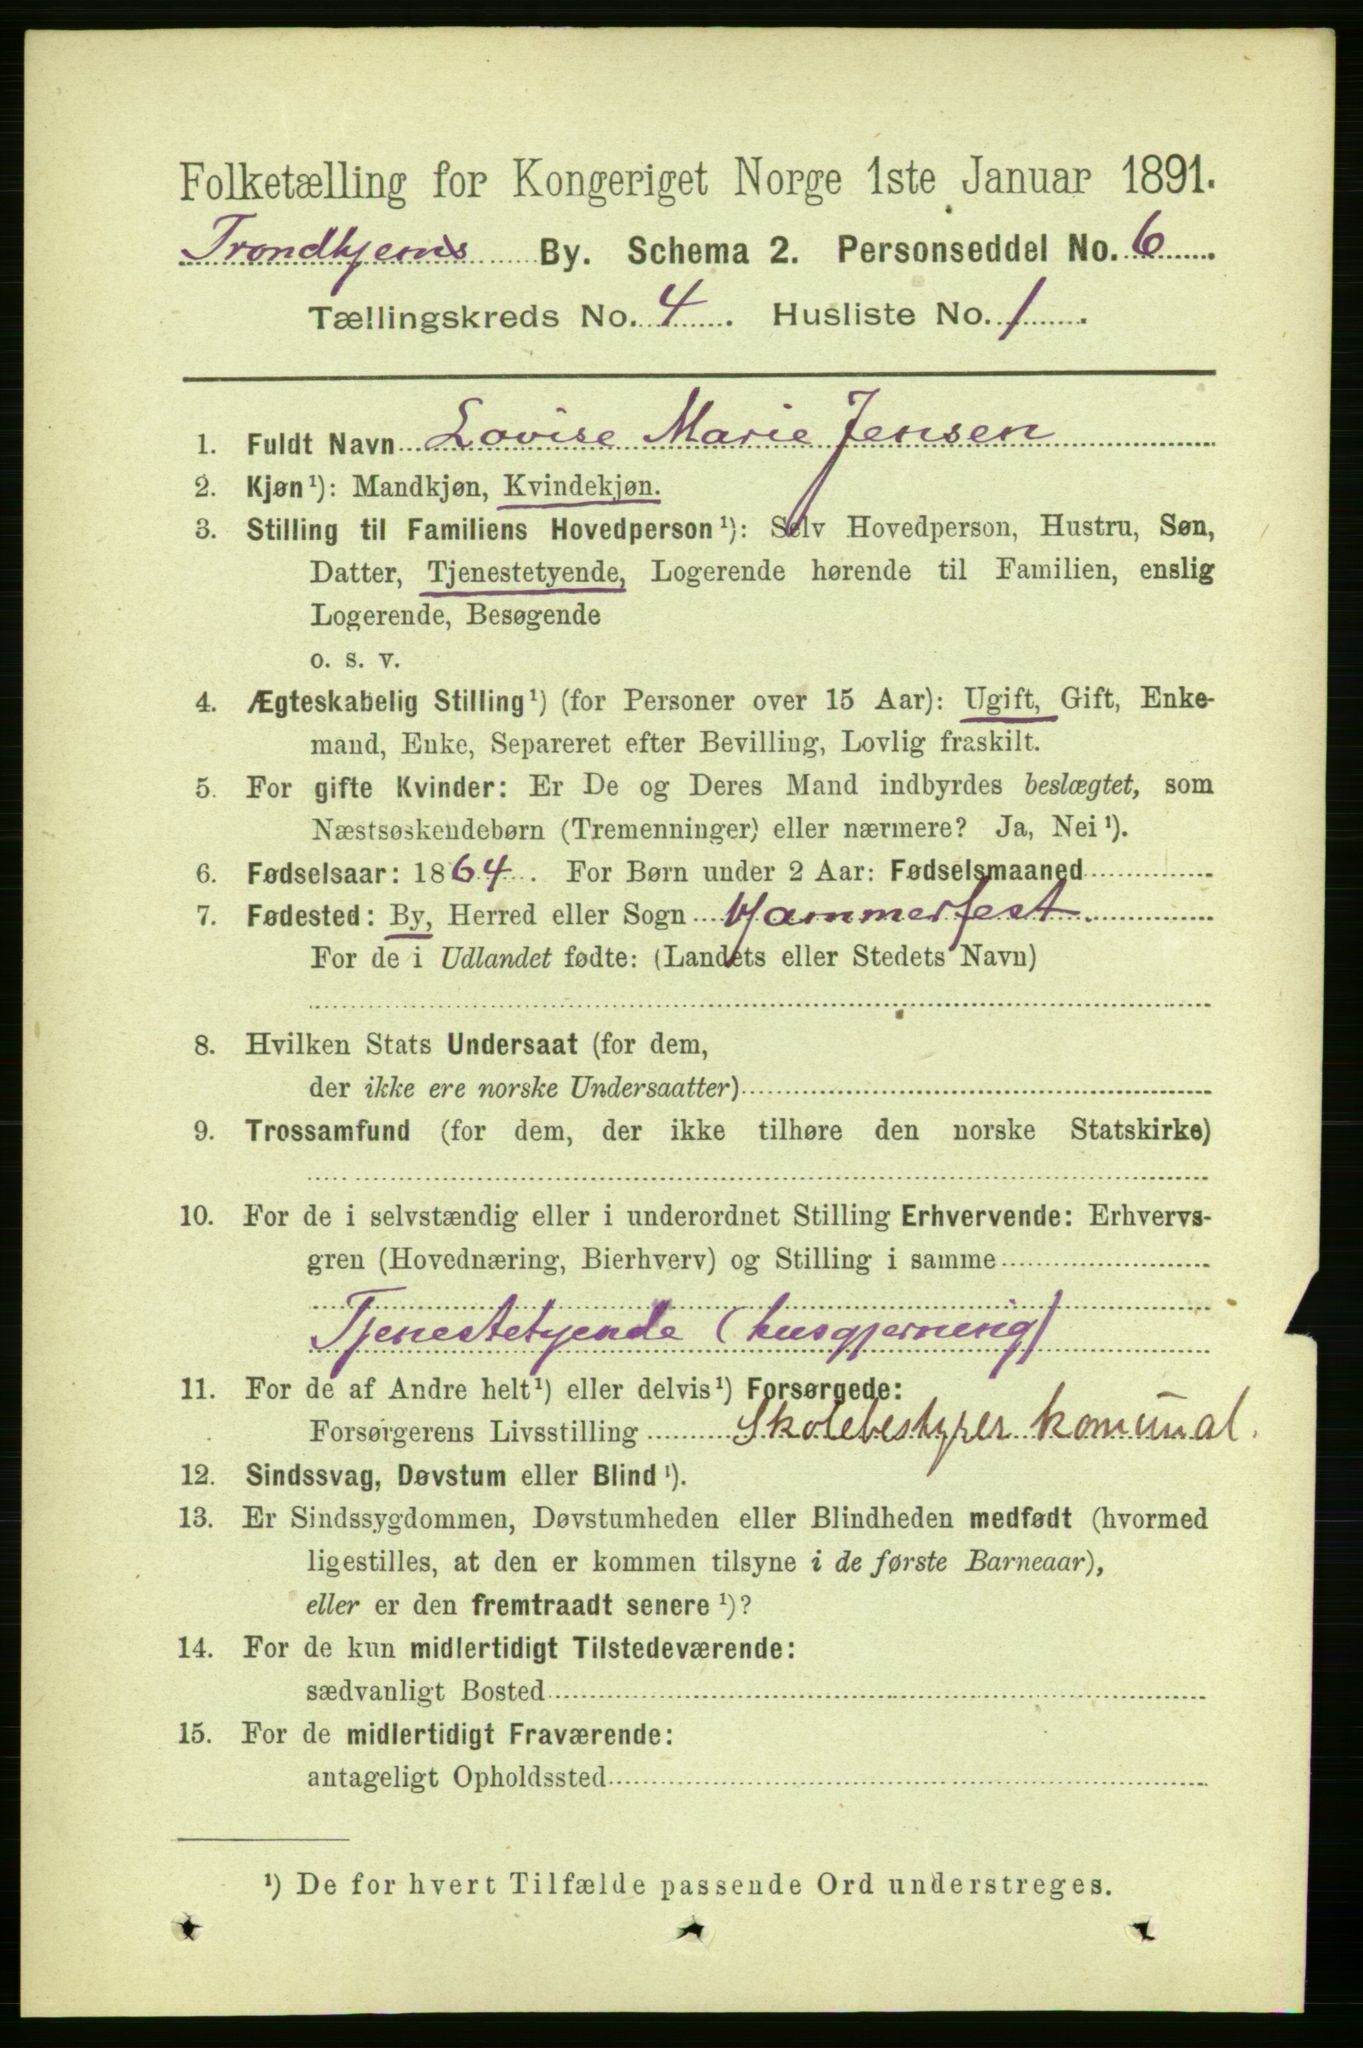 Folketælling for Kongeriget Norge 1ste Januar 1891.
Trondhjems By. Schema 2. Personseddel No. 6
Tællingskreds No. 4. Husliste No. 1.
1. Fuldt Navn Lovise Marie Jensen
2. Kjøn¹): Mandkjøn, Kvindekjøn.
3. Stilling til Familiens Hovedperson¹): Selv Hovedperson, Hustru, Søn,
Datter, Tjenestetyende, Logerende hørende til Familien, enslig
Logerende, Besøgende
o. s. v.
4. Ægteskabelig Stilling¹) (for Personer over 15 Aar): Ugift, Gift, Enke-
mand, Enke, Separeret efter Bevilling, Lovlig fraskilt.
5. For gifte Kvinder: Er De og Deres Mand indbyrdes beslægtet, som
Næstsøskendebørn (Tremenninger) eller nærmere? Ja, Nei¹).
6. Fødselsaar: 1864. For Børn under 2 Aar: Fødselsmaaned
7. Fødested: By, Herred eller Sogn Hammerfest
For de i Udlandet fødte: (Landets eller Stedets Navn)
8. Hvilken Stats Undersaat (for dem,
der ikke ere norske Undersaatter)
9. Trossamfund (for dem, der ikke tilhøre den norske Statskirke)
10. For de i selvstændig eller i underordnet Stilling Erhvervende: Erhvervs-
gren (Hovednæring, Bierhverv) og Stilling i samme
Tjenestetyende (husgjerning)
11. For de af Andre helt¹) eller delvis¹) Forsørgede:
Forsørgerens Livsstilling Skolebestyrer komunal.
12. Sindssvag, Døvstum eller Blind¹).
13. Er Sindssygdommen, Døvstumheden eller Blindheden medfødt (hvormed
ligestilles, at den er kommen tilsyne i de første Barneaar),
eller er den fremtraadt senere¹)?
14. For de kun midlertidigt Tilstedeværende:
sædvanligt Bosted
15. For de midlertidigt Fraværende:
antageligt Opholdssted
¹) De for hvert Tilfælde passende Ord understreges.